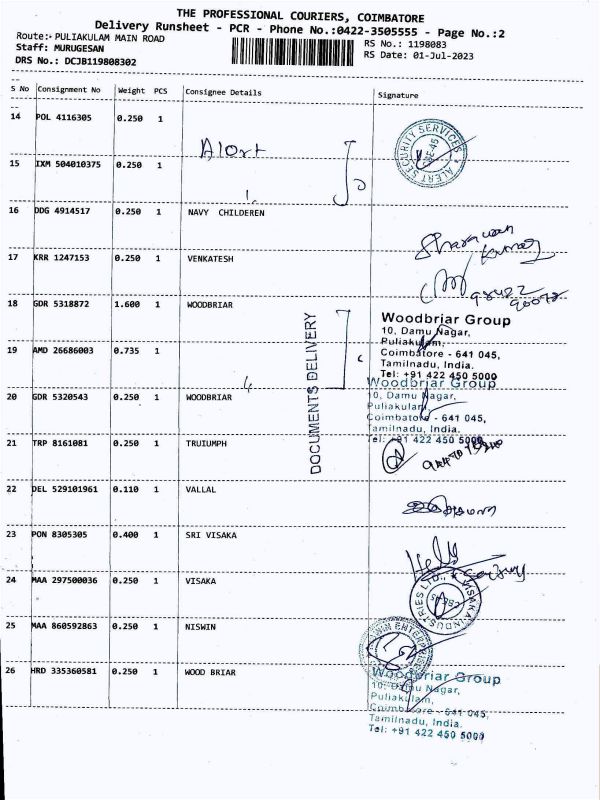 THE PROFESSIONAL COURIERS, COIMBATORE
Delivery Runsheet - PCR - Phone No.:0422-3505555 - Page No.:2
Route:- PULIAKULAM MAIN ROAD
Staff: MURUGESAN
DRS No.: DCJB119808302
RS No.: 1198083
RS Date: 01-Jul-2023
S No Consignment No Weight PCS Consignee Details Signature
14 POL 4116305 0.250 1
Alert
ALERT SECURITY SERVICES
CBE-45
15 IXM 504010375 0.250 1
16 DDG 4914517 0.250 1 NAVY CHILDEREN
17 KRR 1247153 0.250 1 VENKATESH
18 GDR 5318872 1.600 1 WOODBRIAR
Woodbriar Group
10, Damu Nagar,
Puliakulam,
Coimbatore - 641 045,
Tamilnadu, India.
Tel: +91 422 450 5000
19 AMD 26686003 0.735 1
DOCUMENTS DELIVERY
20 GDR 5320543 0.250 1 WOODBRIAR
Woodbriar Group
10, Damu Nagar,
Puliakulam,
Coimbatore - 641 045,
Tamilnadu, India.
Tel: +91 422 450 5000
21 TRP 8161081 0.250 1 TRUIUMPH
22 DEL 529101961 0.110 1 VALLAL
23 PON 8305305 0.400 1 SRI VISAKA
24 MAA 297500036 0.250 1 VISAKA
VISAKA INDUSTRIES LTD.,
25 MAA 860592863 0.250 1 NISWIN
26 HRD 335360581 0.250 1 WOOD BRIAR
Woodbriar Group
10, Damu Nagar,
Puliakulam,
Coimbatore - 641 045,
Tamilnadu, India.
Tel: +91 422 450 5000